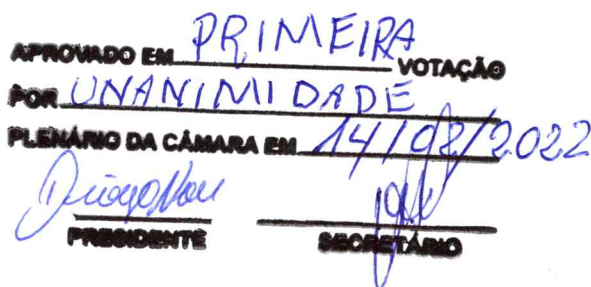 APROVADO EM PRIMEIRA VOTAÇÃO
POR UNANIMIDADE
PLENÁRIO DA CÂMARA EM 14/02/2022
PRESIDENTE SECRETÁRIO